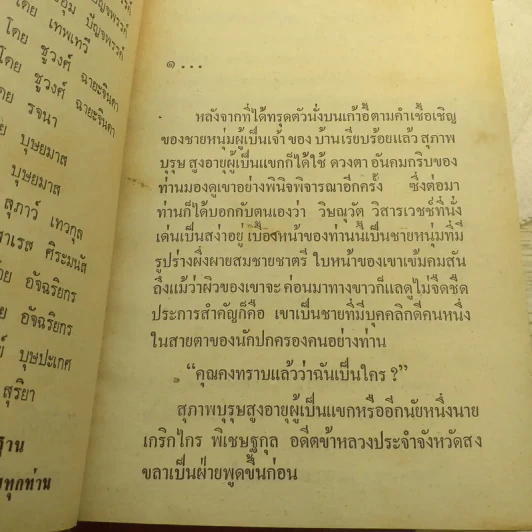 ปัญจพรรค์
อุ่ม ปัญจพรรค์
โดย เทพเทวี
โดย ชูวงศ์ ฉายะจินดา
โดย ชูวงศ์ ฉายะจินดา
โดย รจนา
บุษยมาส
บุษยมาส
สุภาว์ เทวกุล
ศิระมนัส
อัจฉริยกร
อัจฉริยกร
บุษปะเกศ
สุริยา
ฐาน
ทุกท่าน
๑ ...
หลังจากที่ได้ทรุดตัวนั่งบนเก้าอี้ตามคำเชื้อเชิญ
ของชายหนุ่มผู้เป็นเจ้า ของ บ้านเรียบร้อยแล้ว สุภาพ
บุรุษ สูงอายุผู้เป็นแขกก็ได้ใช้ ดวงตา อันคมกริบของ
ท่านมองดูเขาอย่างพินิจพิจารณาอีกครั้ง ซึ่งต่อมา
ท่านก็ได้บอกกับตนเองว่า วิษณุวัต วิสารเวชช์ที่นั่ง
เด่นเป็นสง่าอยู่ เบื้องหน้าของท่านนี้เป็นชายหนุ่มที่มี
รูปร่างผึ่งผายสมชายชาตรี ใบหน้าของเขาเข้มคมสัน
ถึงแม้ว่าผิวของเขาจะ ค่อนมาทางขาวก็แลดูไม่จืดชืด
ประการสำคัญก็คือ เขาเป็นชายที่มีบุคคลิกดีคนหนึ่ง
ในสายตาของนักปกครองคนอย่างท่าน
“คุณคงทราบแล้วว่าฉันเป็นใคร ?”
สุภาพบุรุษสูงอายุผู้เป็นแขกหรืออีกนัยหนึ่งนาย
เกริกไกร พิเชษฐกุล อดีตข้าหลวงประจำจังหวัดสง
ขลาเป็นฝ่ายพูดขึ้นก่อน